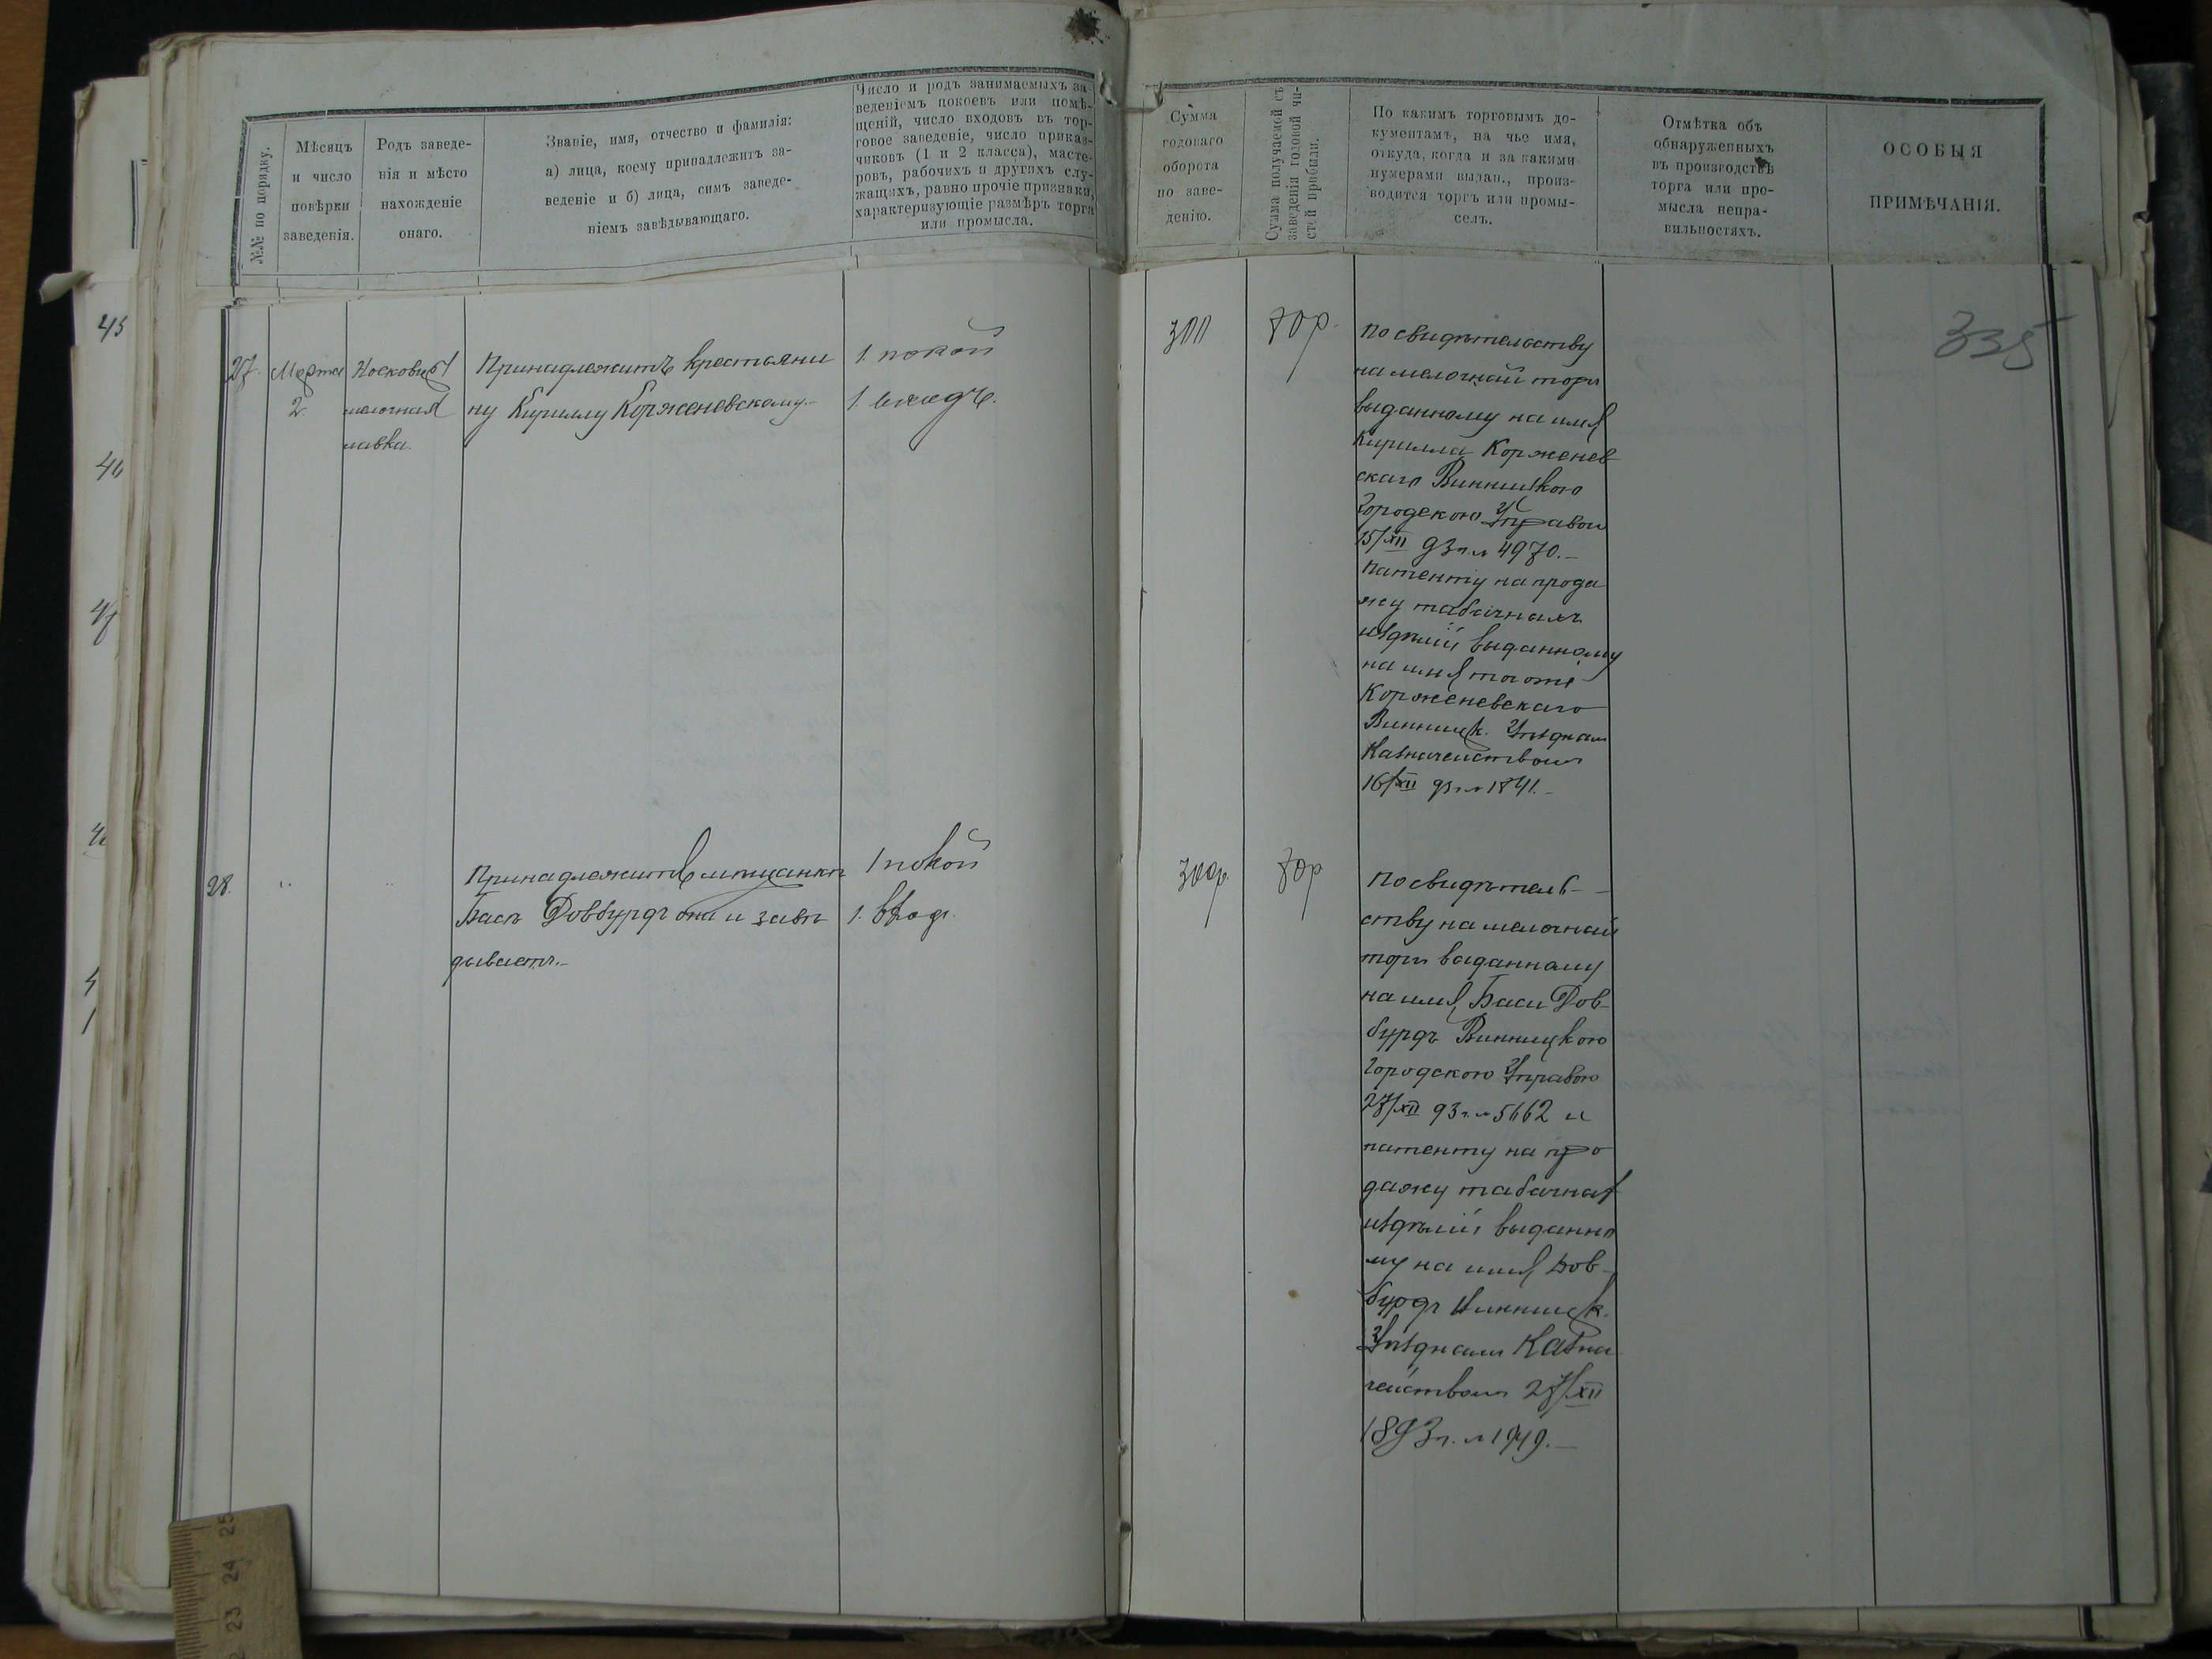 №№ по порядку.
Мѣсяцъ
и число
повѣрки
заведенія.
Родъ заведе-
нія и мѣсто
нахожденіе
онаго.
Званіе, имя, отчество и фамилія:
а) лица, коему принадлежитъ за-
веденіе и б) лица, симъ заведе-
ніемъ завѣдывающаго.
Число и родъ занимаемыхъ за-
веденіемъ покоевъ или помѣ-
щеній, число входовъ въ тор-
говое заведеніе, число приказ-
чиковъ (1 и 2 класса), масте-
ровъ, рабочихъ и другихъ слу-
жащихъ, равно прочіе признаки,
характеризующіе размѣръ торга
или промысла.
Сумма
годоваго
оборота
по заве-
денію.
Сумма получаемой съ
заведенія годовой чи-
стой прибыли.
По какимъ торговымъ до-
кументамъ, на чье имя,
откуда, когда и за какими
нумерами выдан., произ-
водится торгъ или промы-
селъ.
Отмѣтка объ
обнаруженныхъ
въ производствѣ
торга или про-
мысла непра-
вильностяхъ.
ОСОБЫЯ
ПРИМѢЧАНІЯ.
335
45
46
47
27.
Марта
2.
мелочная
лавка.
Принадлежитъ крестьяни
ну Кириллу Корженевскому.–
1. покой
1. входъ.
300
70р.
по свидѣтельству
на мелочной торгъ
выданному на имя
Кирилла Корженев
скаго Винницкою
Городскою Управою
15/XII 93 г. № 4970.–
патенту на прода
жу табачныхъ
издѣлій выданному
на имя тогоже
Корженевскаго
Винницк. Уѣзднымъ
Казначействомъ
16/XII 93 г. № 1841.–
28.
"
"
Принадлежитъ мѣщанкѣ
Басѣ Довбурдъ она и завѣ
дываетъ.–
1 покой
1. входъ.
300р.
70р
по свидѣтель-
ству на мелочной
торгъ выданному
на имя Баси Дов-
бурдъ Винницкою
Городскою Управою
27/XII 93 г. № 5662 и
патенту на про
дажу табачных
издѣлій выданно
му на имя Дов-
бурдъ Винницк.
Уѣзднымъ Казна
чействомъ 27/XII
1893 г. № 1949.–
25
24
23